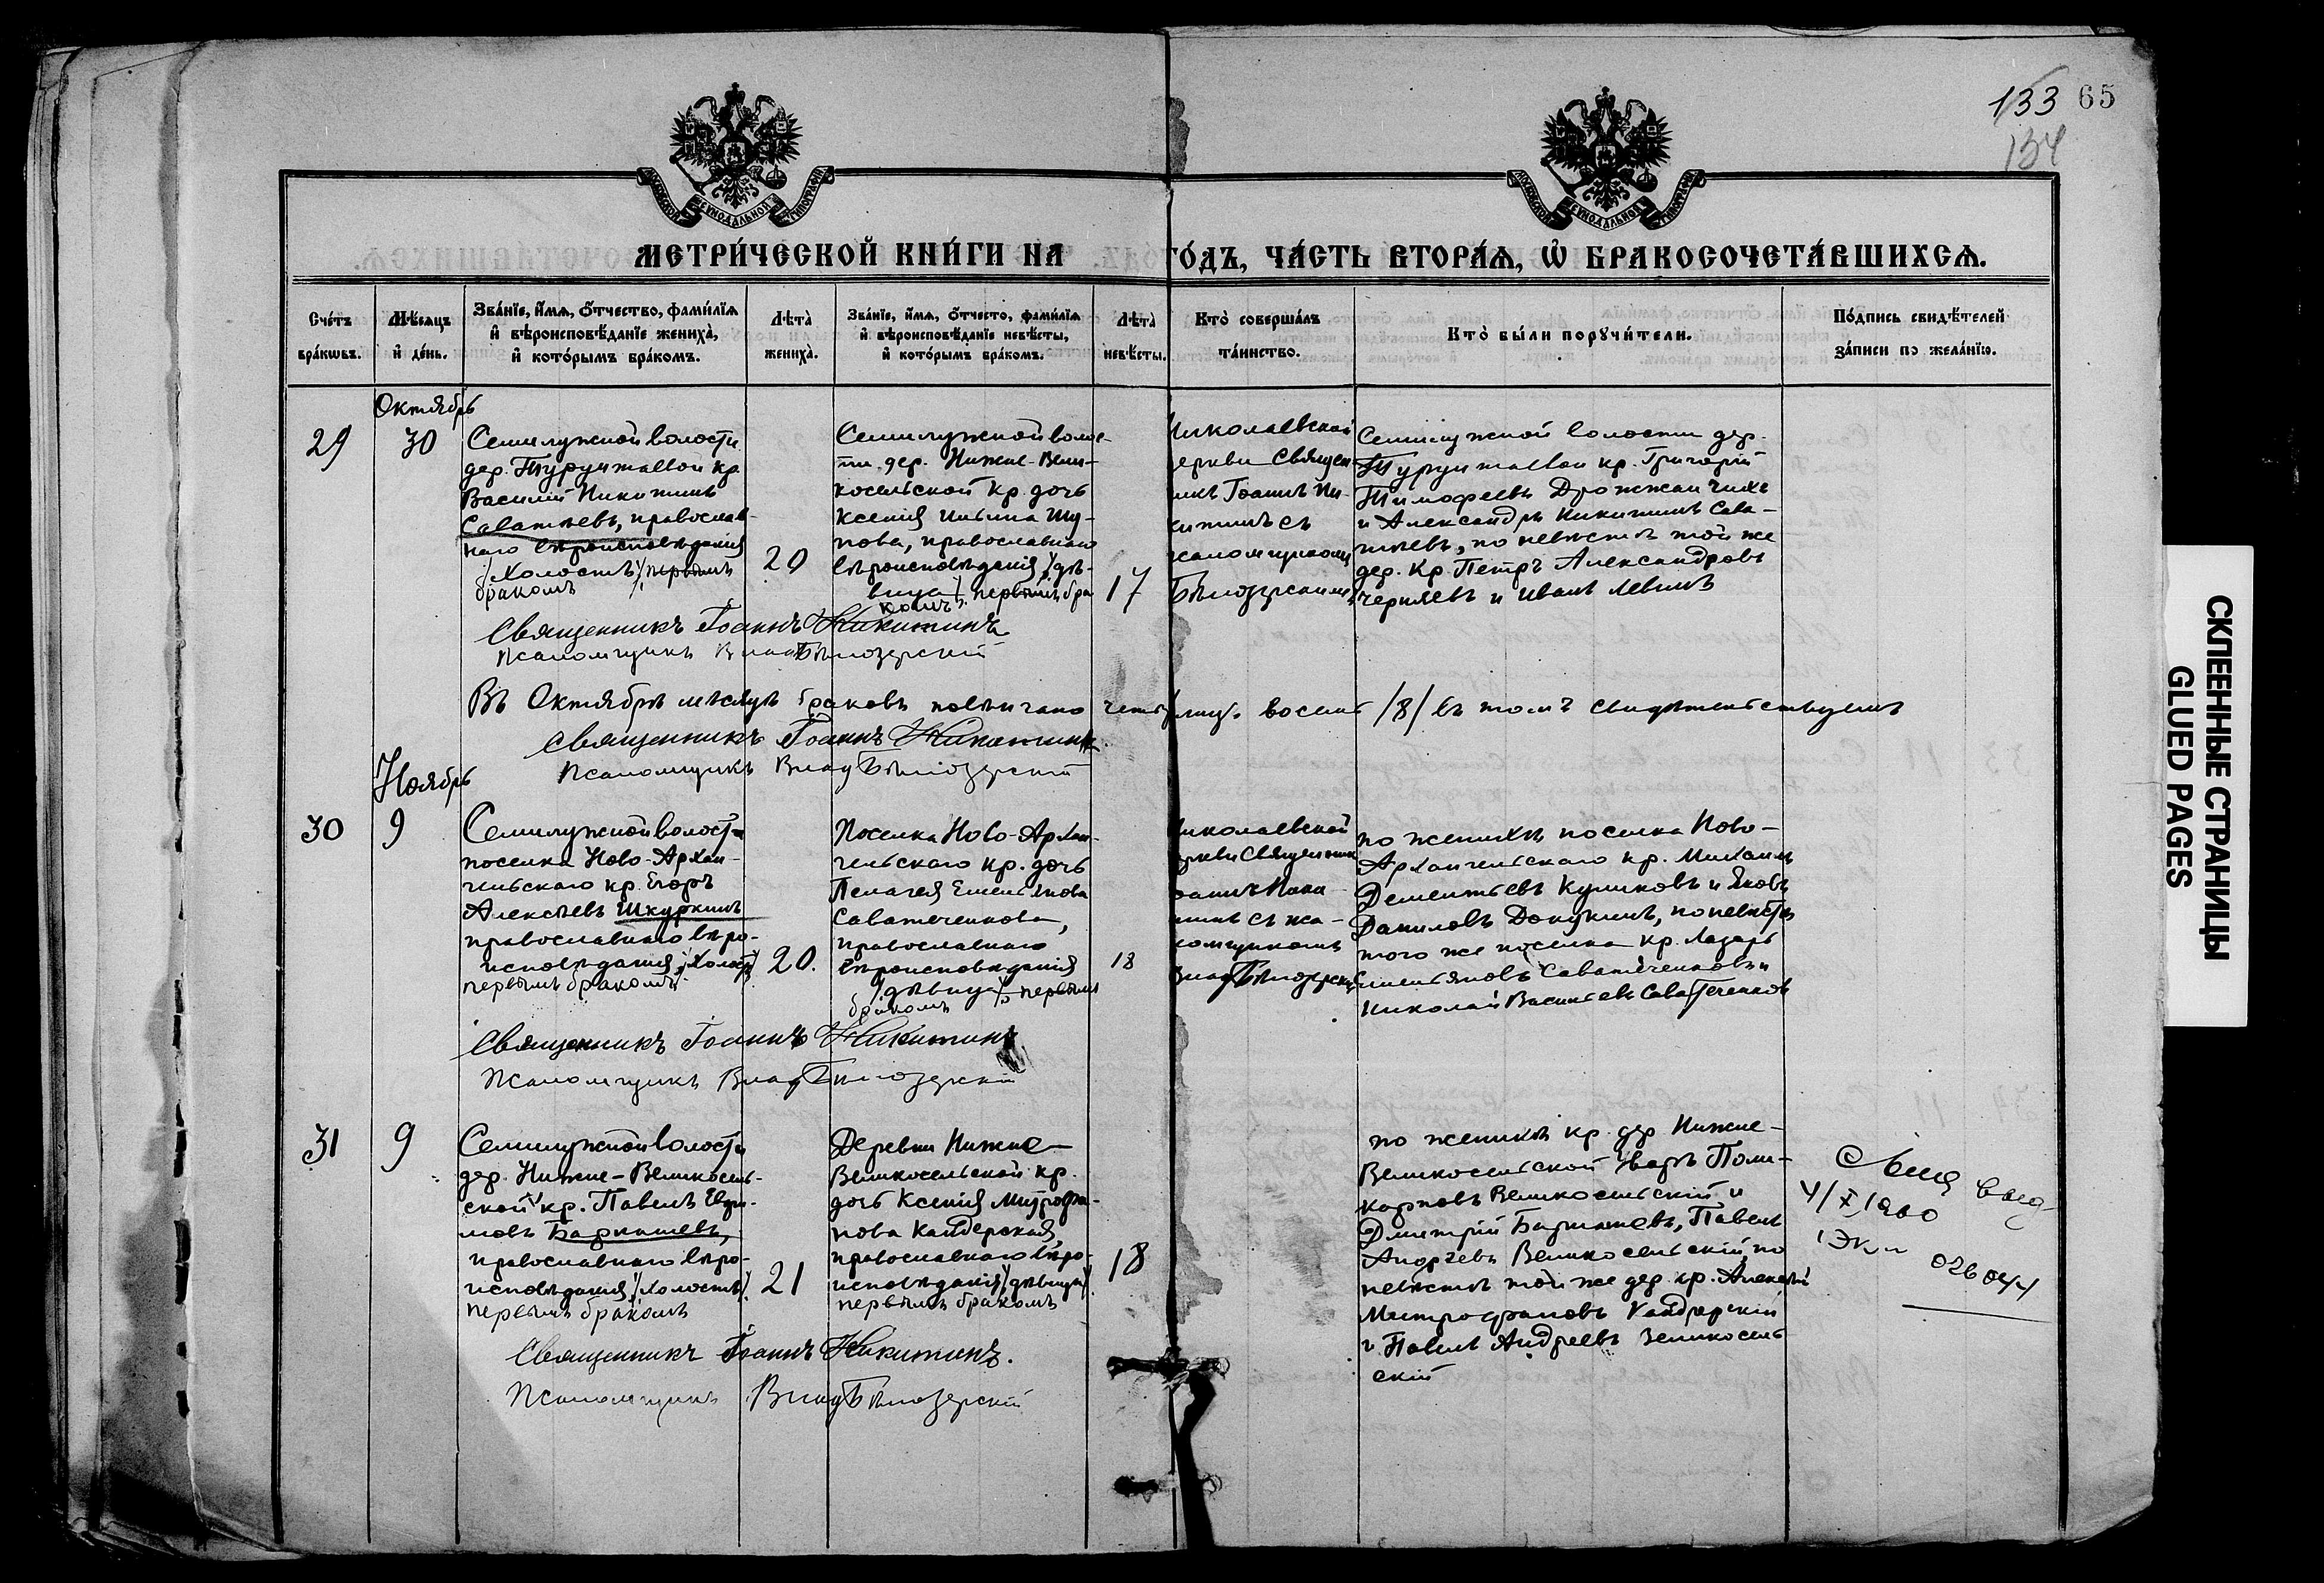 133 65
134
МОСКОВСКОЙ СѴНОДАЛЬНОЙ ТИПОГРАФІИ
МОСКОВСКОЙ СѴНОДАЛЬНОЙ ТИПОГРАФІИ
МЕТРИ́ЧЕСКОЙ КНИ́ГИ НА ГО́ДЪ, ЧА́СТЬ ВТОРА́Ѧ, Ѽ БРАКОСОЧЕТА́ВШИХСѦ.
Сче́тъ
бра́кѡвъ.
Мѣ́сѧцъ
и҆ де́нь.
Зва́нїе, и҆́мѧ, ѻ҆́тчество, фами́лїѧ
и҆ вѣроисповѣ́данїе жениха̀,
и҆ кото́рымъ бра́комъ.
Лѣта̀
жениха̀.
Зва́нїе, и҆́мѧ, ѻ҆́тчесто, фами́лїѧ
и҆ вѣроисповѣ́данїе невѣ́сты,
и҆ кото́рымъ бра́комъ.
Лѣта̀
невѣ́сты.
Кто̀ соверша́лъ
та́инство.
Кто̀ бы́ли порꙋчи́тели.
По́дпись свидѣ́телей
за́писи по жела́нїю.
Октябрь
29
30
Семилужной волости
дер. Турунтаевой кр.
Василий Никитинъ
Саватѣевъ, православ-
наго вѣроисповѣданія
/Холостъ/, первымъ
бракомъ
20
Семилужной волос-
ти дер. Нижне-Вели-
косельской кр. дочь
Ксенія Ильина Шу-
пова, православнаго
вѣроисповѣданія /дѣ-
вица/, первымъ бра
комъ.
17
Николаевской
церкви Священ-
никъ Іоаннъ Ни-
китинъ съ
псаломщикомъ
Бѣлозерскимъ
Семилужной волости дер.
Турунтаевой кр. Григорій
Тимофеевъ
и Александръ Никитинъ Сава-
тѣевъ, по невѣстѣ той же
дер. Кр. Петръ Александровъ
Черняевъ и Иванъ Левинъ
Священникъ Іоаннъ Никитинъ
Псаломщикъ Влад Бѣлозерскій
Въ Октябрѣ мѣсяцѣ браковъ повѣнчано восемь /8/ въ томъ свидѣтельствуемъ
Священникъ Іоаннъ Никитинъ
Псаломщикъ Влад Бѣлозерскій
Ноябрь
30
9
Семилужной волости
поселка Ново-Архан-
гельскаго кр. Егоръ
Алексѣевъ Шкуркинъ
православнаго вѣро-
исповѣданія, /Холост/
первымъ бракомъ
20.
Поселка Ново-Архан-
гельскаго кр. дочь
Пелагея Емельянова
Саватеченкова,
православнаго
вѣроисповѣданія
/дѣвица/, первымъ
бракомъ
18
Николаевской
церкви Священникъ
Іоаннъ Ники-
тинъ съ пса-
ломщикомъ
Влад Бѣлозерскимъ
по женихѣ поселка Ново-
Архангельскаго кр. Михаилъ
Дементьевъ Куликовъ и Яковъ
Даниловъ Докукинъ, по невѣстѣ
того же поселка кр. Лазарь
Емельяновъ Саватеченковъ и
Николай Васильевъ Саватеченковъ
Священникъ Іоаннъ Никитинъ
Псаломщикъ Влад Бѣлозерскій
31
9
Семилужной волости
дер. Нижне-Великосель-
ской кр. Павелъ Ефи-
мовъ Баркашевъ,
православнаго вѣро-
исповѣданія, /Холостъ/.
первымъ бракомъ
21
Деревни Нижне-
Великосельской кр.
дочь Ксенія Митрофа-
нова Кайдерская,
православнаго вѣро-
исповѣданія, /дѣвица/.
первымъ бракомъ
18
по женихѣ кр. дер. Нижне-
Великосельской Уваръ Поли-
карповъ Великосельскій и
Дмитрій Баркашевъ, Павелъ
Андреевъ Великосельскій, по
невѣстѣ той же дер. кр. Алексѣй
Митрофановъ Кайдерскій
и Павелъ Андреевъ Великосель
скій
4/X 1960
026044
Священникъ Іоаннъ Никитинъ.
Псаломщикъ Влад Бѣлозерскій
СКЛЕЕННЫЕ СТРАНИЦЫ
GLUED PAGES